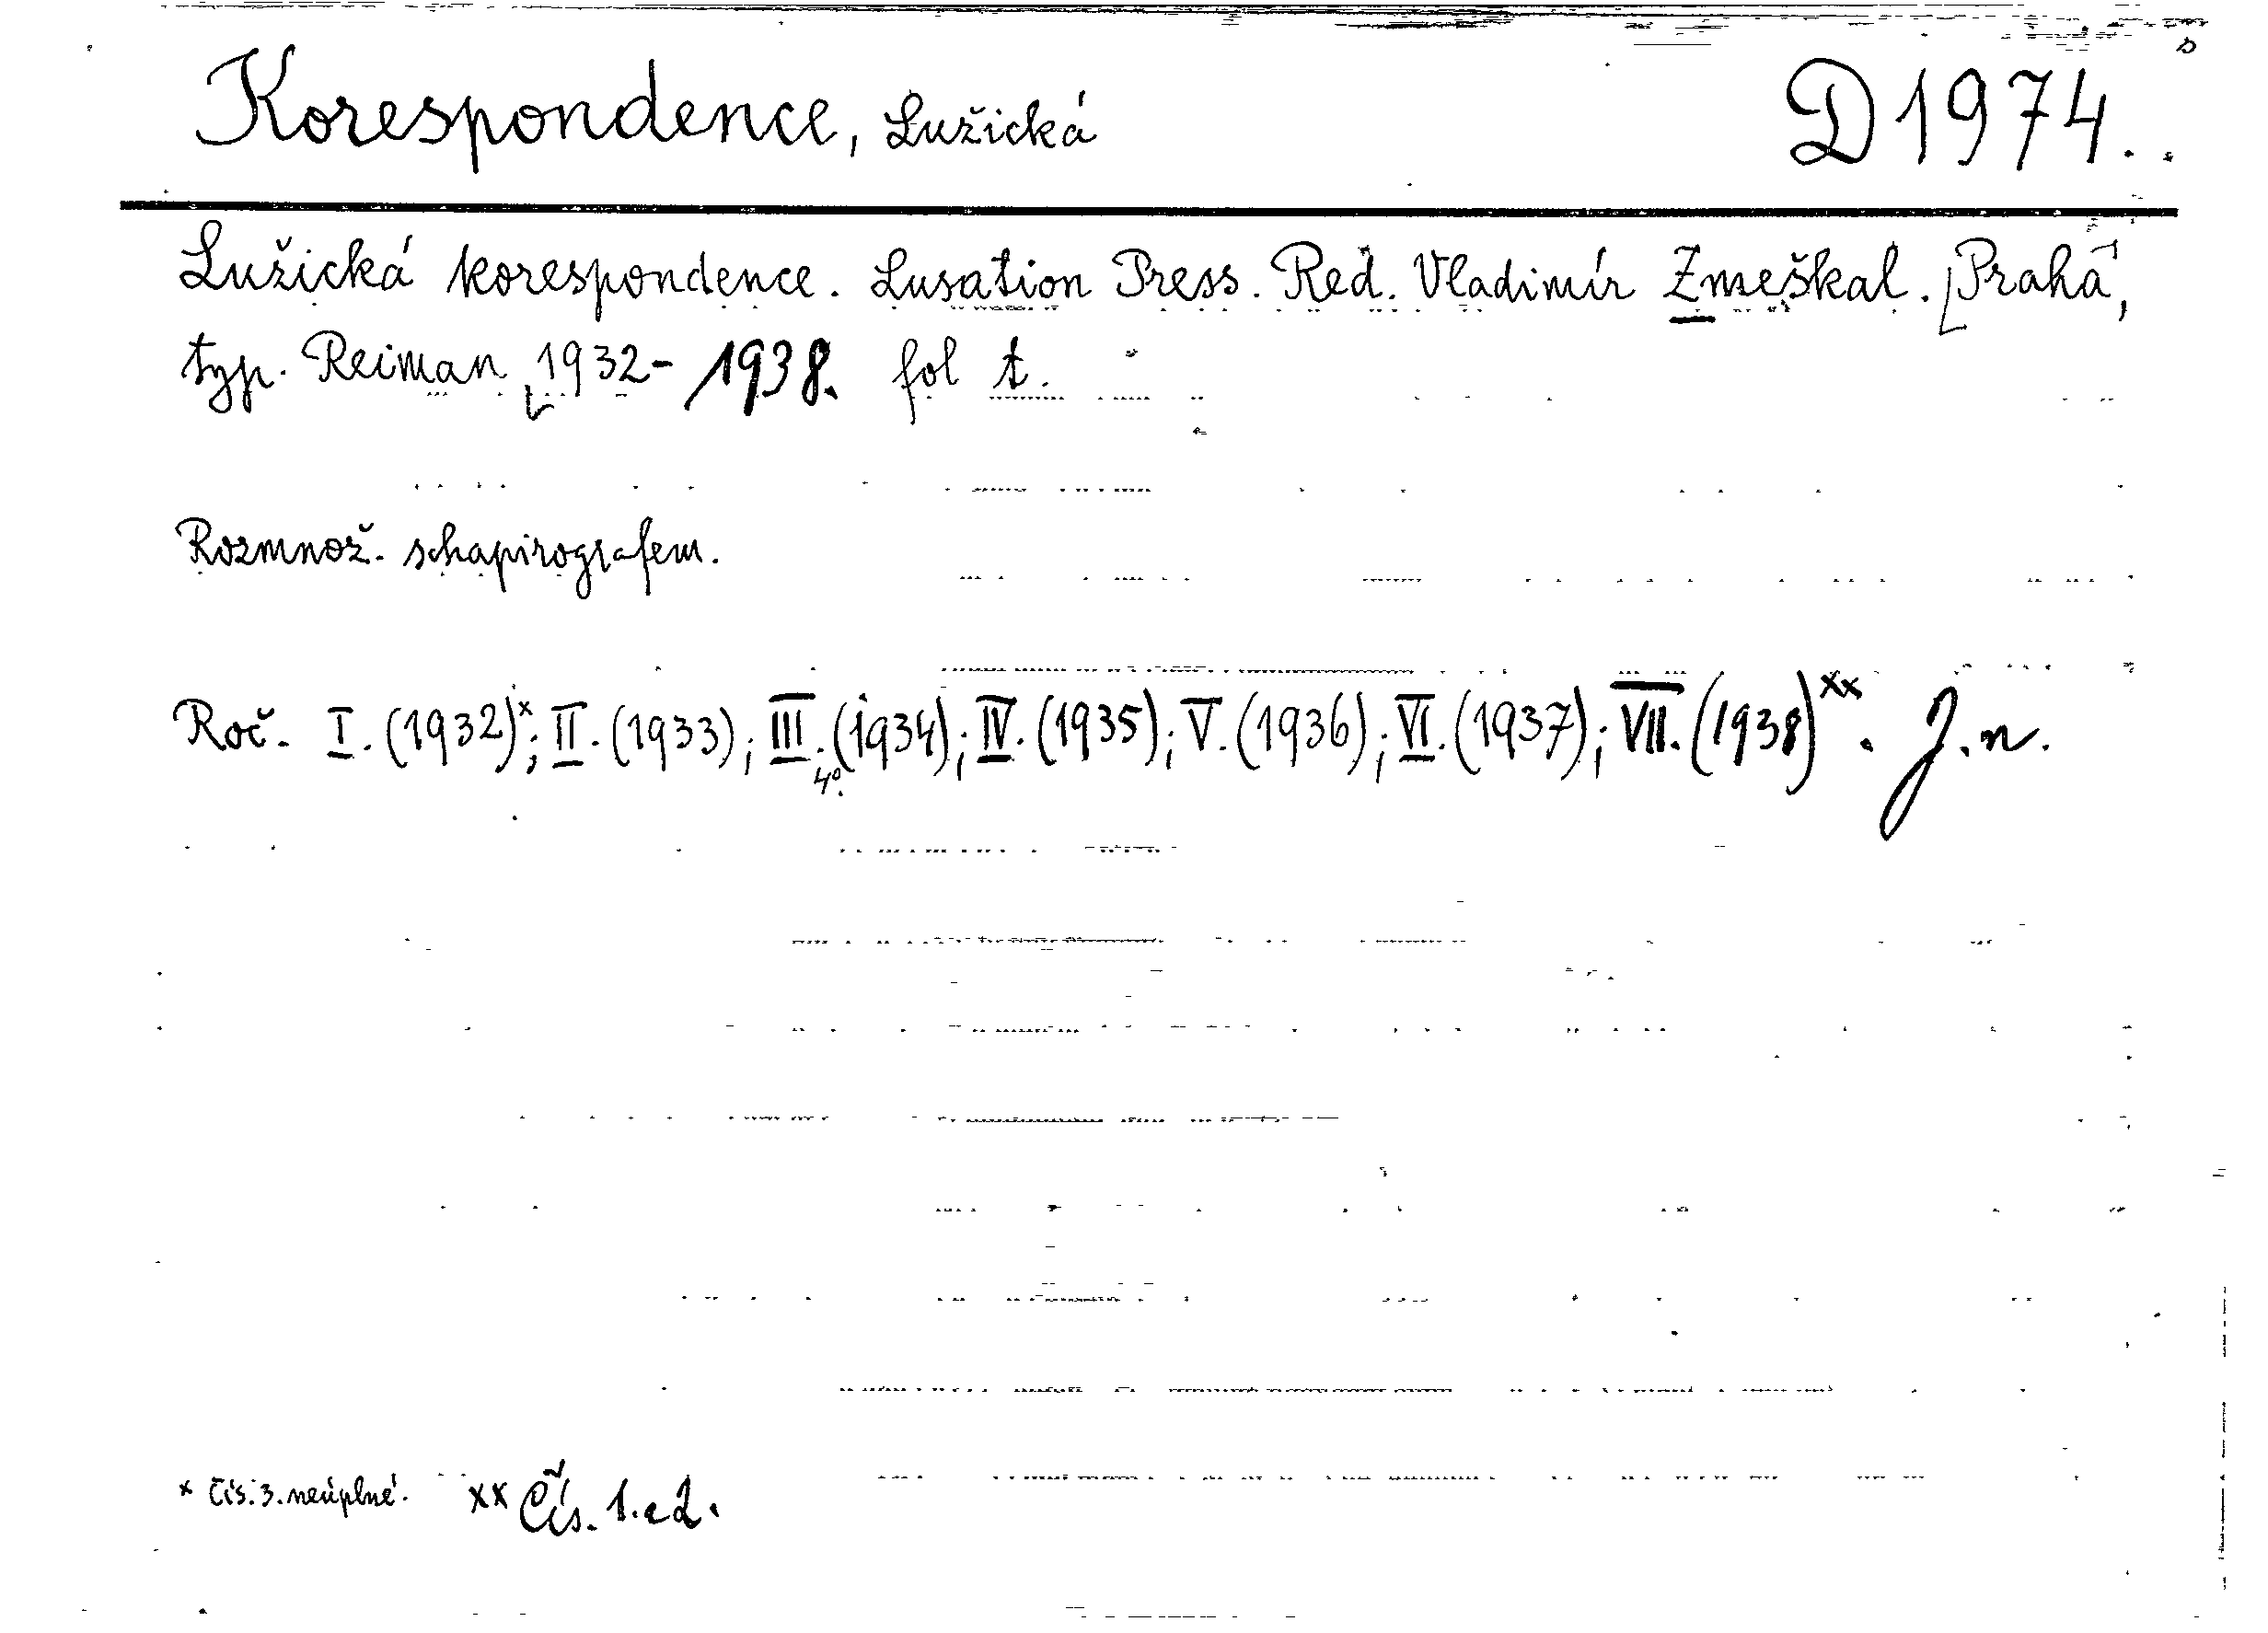 Korespondence, Lužická D 1974.
Lužická korespondence. Lusation Press. Red. Vladimír Zmeškal. [Praha],
typ. Reiman [1932-1938. fol t.
Rozmnož. schapirografem.
Roč. I. (1932)ˣ; II. (1933); III. (1934); IV. (1935); V. (1936); VI. (1937); VII. (1938)ˣˣ. J. n.
4°.
x Čís. 3. neúplné. xx Čís. 1. a 2.